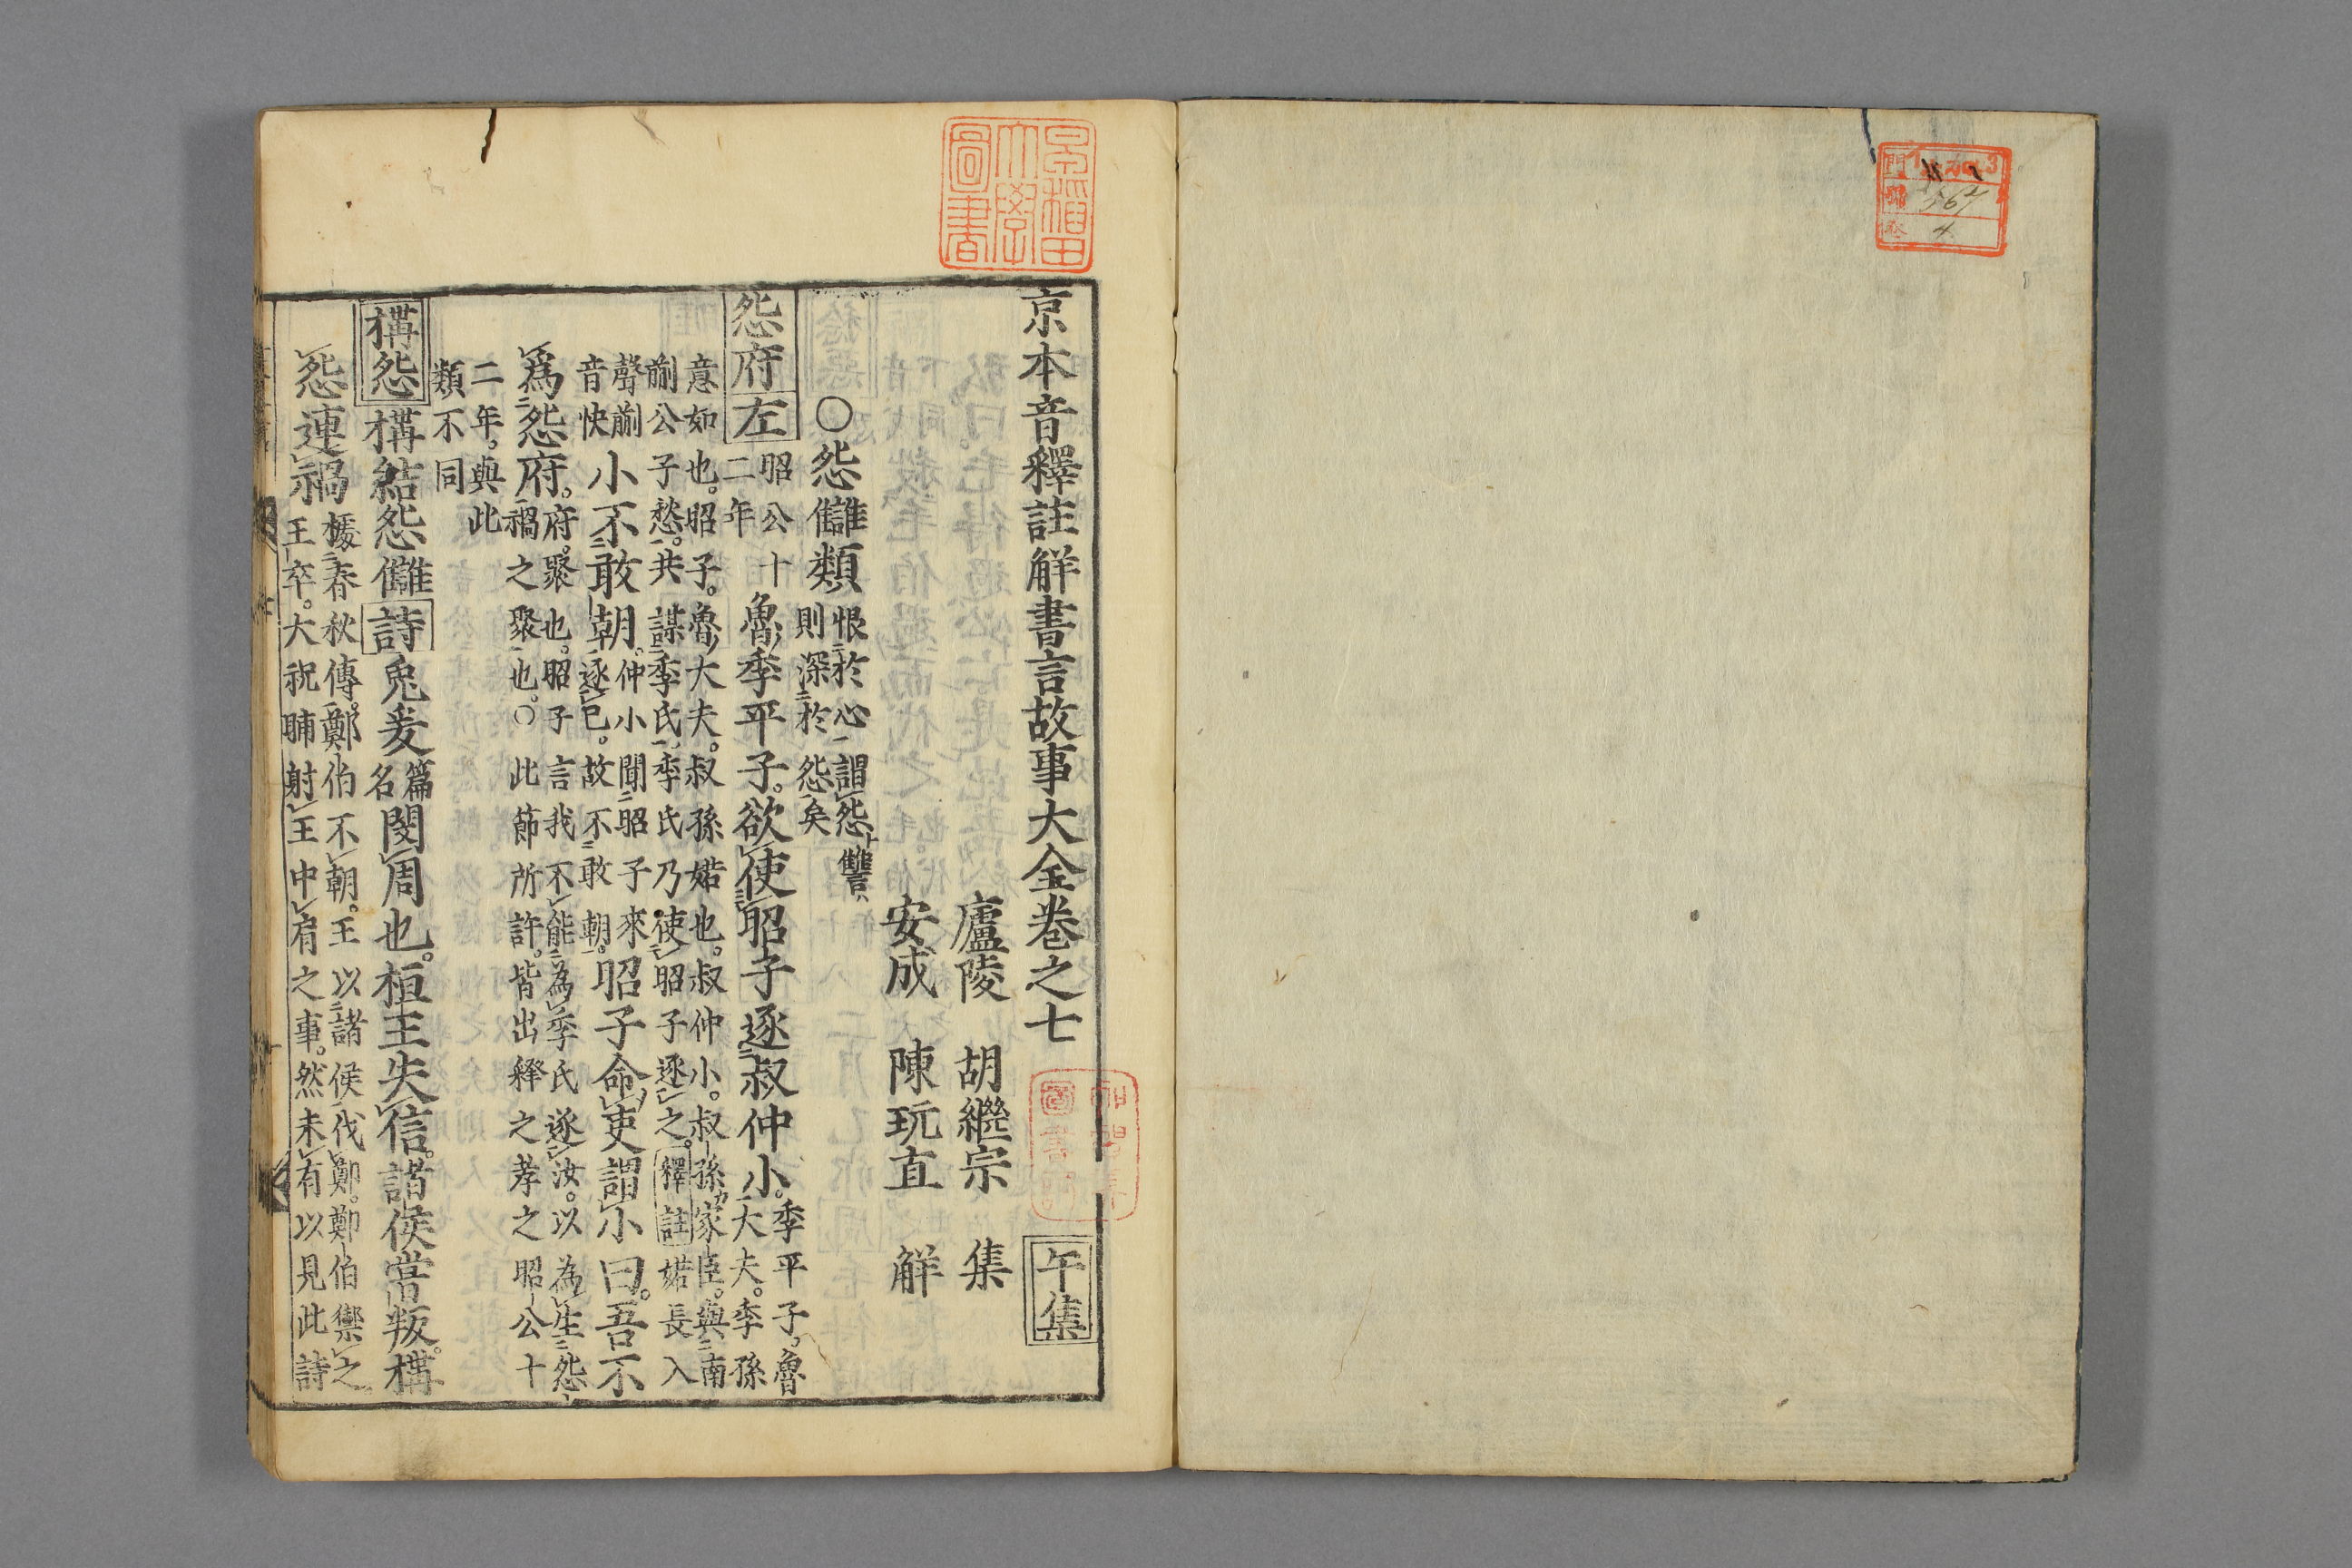 京本音釋註解書言故事大全卷之七 午集
廬陵 胡繼宗 集
安成 陳玩直 解
○怨讎類
恨於心謂怨讐
則深於怨矣
怨府 左
昭公十
二年
魯季平子欲使昭子逐叔仲小
季平子魯
大夫季孫
意如也昭子魯大夫叔孫婼也叔仲小叔孫家臣與南
蒯公子憖共謀季氏季氏乃使昭子逐之 釋註 婼長入
聲蒯
音快
小不敢朝
仲小聞昭子來
逐己故不敢朝
昭子命吏謂小曰吾不
爲怨府
府聚也昭子言我不能為季氏逐汝以為生怨
禍之聚也○此節所許皆出釋之孝之昭公十
二年與此
類不同
構怨 構結怨讎 詩 兎爰
篇
名
閔周也桓王失信諸侯當叛構
怨連禍
據春秋傳鄭伯不朝王以諸侯伐鄭鄭伯禦之
王卒大祝聃射王中肩之事然未有以見此詩
早稲田
大學
圖書
門
號 567
卷 4